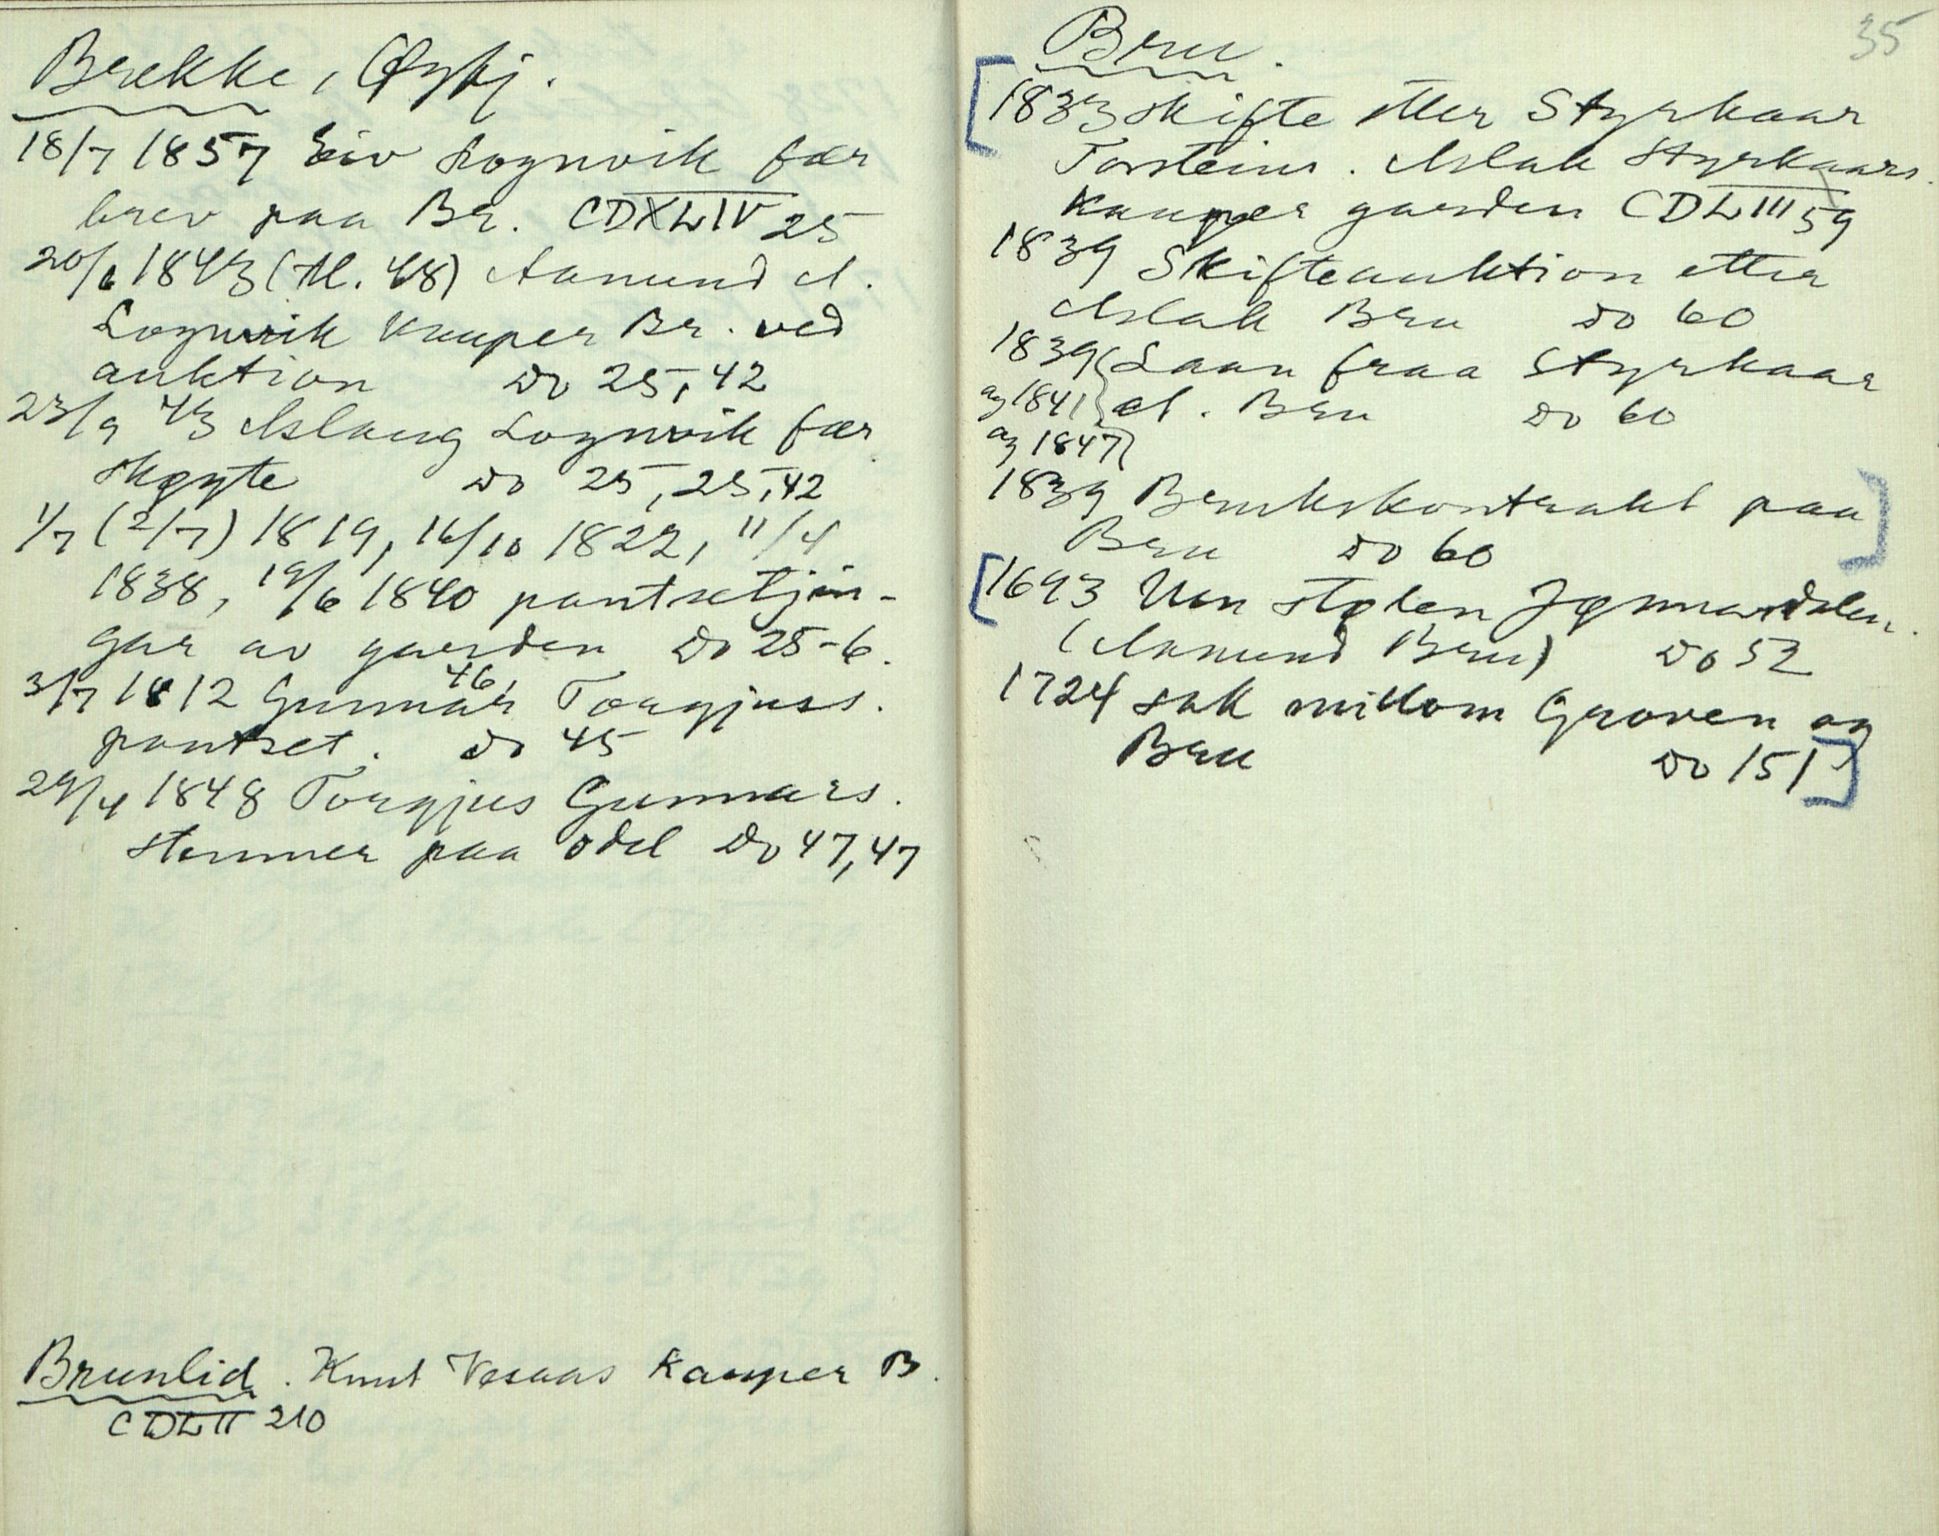 Brekke, Øyfj.
18/7 1857 Eiv Lognvik fær
brev paa Br. CDXLIV 25
20/6 1843 (Al. 48) Aamund A.
Lognvik kauper Br. ved
auktion Do 25, 42
23/9 43 Aslaug Lognvik fær
skøyte Do 25, 25, 42
1/7 (2/7) 1819, 16/10 1822, 11/4
1838, 19/6 1840 pantsetjin-
gar av garden Do 25-6.
3/7 1812 Gunnar Torgjuss.
pantset. Do 45
46,
29/4 1848 Torgjus Gunnars.
stemner paa odel Do 47, 47
Brunlid. Knut Vesaas kauper B.
CDLII 210
35
Bru.
1833 skifte etter Styrkaar
Torsteins. Aslak Styrkaars.
kauper garden CDLIII 59
1839 Skifteauktion etter
Aslak Bru Do 60
1839 Laan fraa Styrkaar
og 1841 A. Bru Do 60
og 1847
1839 Brukskontrakt paa
Bru Do 60
1693 Um stølen
(Aamund Bru) Do 52
1724 sak millom Groven og
Bru Do 151